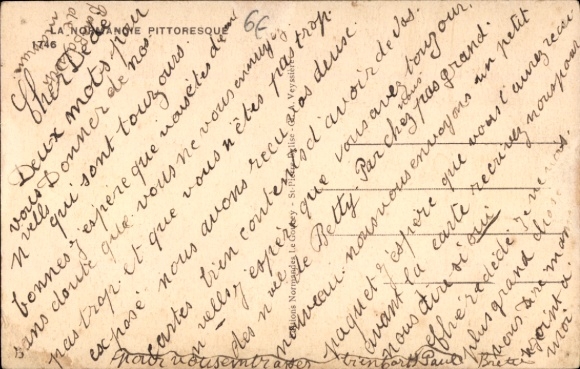 LA NORMANDIE PITTORESQUE
1746
6€
Cher Dédé
Deux mots pour
vous donner de nos
nvells qui sont toujours
bonnes j'espère que vois êtes de m
sans doute que vous ne vous ennuyez
pas trop et que vous n'êtes pas trop
exposé nous avons reçu vos deux
cartes bien contents d'avoir de vos
nvelles j'espère que vous avez toujour
des nvelle de Betty. Par chez nous pas grand
nouveau nous vous envoyons un petit
paquet j'espère que vous l'aurez reçu
avant la carte récrivez nous pour
nous dire si oui
cher dédé je ne vois
plus grand chose
vous dire man
joint à
moi
pour vous embrasser bien fort Paul Brice
Editions Normandes Le Goubey - St-Pierre-Eglise - G. A. Veyssière